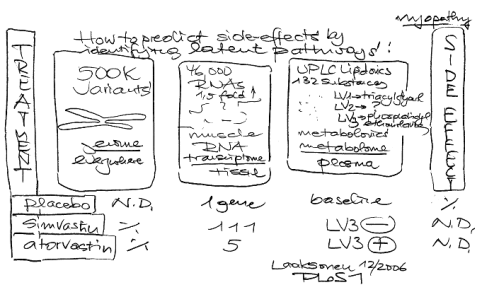 myopathy
How to predict side-effects by
identifying latent pathways!
TREATMENT
500K
Variants
everywhere
46,000
RNAs
1,5 fold ↑
muscle
RNA
transcriptome
tissue
UPLC Lipidomics
132 Substances
LV1→
LV2→
LV3→
metabolomics
metabolome
plasma
SIDE EFFECT
placebo N.D. 1 gene baseline ٪
Simvastin ٪ 111 LV3 ⊖ N.D.
atorvastin ٪ 5 LV3 ⊕ N.D.
Laaksonen 12/2006
PLoS 1